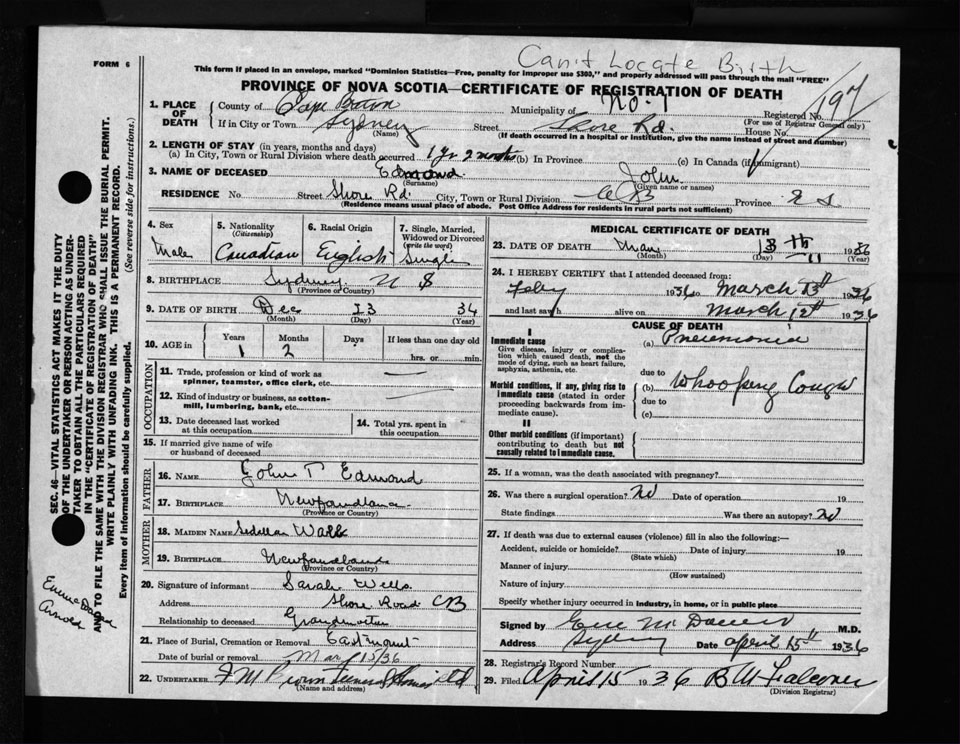 Can't Locate Birth
FORM 6
This form if placed in an envelope, marked "Dominion Statistics—Free, penalty for improper use $300," and properly addressed will pass through the mail "FREE"
PROVINCE OF NOVA SCOTIA—CERTIFICATE OF REGISTRATION OF DEATH
1. PLACE OF DEATH County of Cape Breton Municipality of No. 1 Registered No. 197
(For use of Registrar General only)
If in City or Town Sydney Street Shore Rd. House No.
(Name) (If death occurred in a hospital or institution, give the name instead of street and number)
2. LENGTH OF STAY (in years, months and days)
(a) In City, Town or Rural Division where death occurred 1 yr 2 months (b) In Province (c) In Canada (if immigrant)
3. NAME OF DECEASED Edmond. John
(Surname) (Given name or names)
RESIDENCE No Street Shore Rd. City, Town or Rural Division CB Province N S
(Residence means usual place of abode. Post Office Address for residents in rural parts not sufficient)
4. Sex 5. Nationality (Citizenship) 6. Racial Origin 7. Single, Married, Widowed or Divorced (write the word)
Male Canadian English Single
8. BIRTHPLACE Sydney N S
(Province or Country)
9. DATE OF BIRTH Dec 13 34
(Month) (Day) (Year)
10. AGE in Years Months Days If less than one day old
1 2 hrs. or min.
OCCUPATION
11. Trade, profession or kind of work as spinner, teamster, office clerk, etc.
12. Kind of industry or business, as cotton-mill, lumbering, bank, etc.
13. Date deceased last worked at this occupation 14. Total yrs. spent in this occupation
15. If married give name of wife or husband of deceased
FATHER
16. NAME John T Edmond
17. BIRTHPLACE Newfoundland
(Province or Country)
MOTHER
18. MAIDEN NAME
19. BIRTHPLACE Newfoundland
(Province or Country)
20. Signature of informant Sarah Wells
Address Shore Road CB
Relationship to deceased Grandmother
21. Place of Burial, Cremation or Removal Eastmount
Date of burial or removal Mar 15/36
22. UNDERTAKER F M Brown Funeral Homes Ltd
(Name and address)
MEDICAL CERTIFICATE OF DEATH
23. DATE OF DEATH Mar 13th 1936
(Month) (Day) (Year)
24. I HEREBY CERTIFY that I attended deceased from:
Feby 1936 to March 13th 1936
and last saw h alive on March 12th 1936
CAUSE OF DEATH
I
Immediate cause (a) Pneumonia
Give disease, injury or complication which caused death, not the mode of dying, such as heart failure, asphyxia, asthenia, etc.
due to
Morbid conditions, if any, giving rise to immediate cause (stated in order proceeding backwards from immediate cause).
(b) Whooping Cough
due to
(c)
II
Other morbid conditions (if important) contributing to death but not causally related to immediate cause.
25. If a woman, was the death associated with pregnancy?
26. Was there a surgical operation? No Date of operation 19
State findings Was there an autopsy? No
27. If death was due to external causes (violence) fill in also the following:—
Accident, suicide or homicide? Date of injury 19
(State which)
Manner of injury
(How sustained)
Nature of injury
Specify whether injury occurred in industry, in home, or in public place
Signed by M.D.
Address Sydney Date April 15th 1936
28. Registrar's Record Number
29. Filed April 15 1936 B M Falconer
(Division Registrar)
SEC. 46—VITAL STATISTICS ACT MAKES IT THE DUTY
OF THE UNDERTAKER OR PERSON ACTING AS UNDER-
TAKER TO OBTAIN ALL THE PARTICULARS REQUIRED
IN THE "CERTIFICATE OF REGISTRATION OF DEATH"
AND TO FILE THE SAME WITH THE DIVISION REGISTRAR WHO SHALL ISSUE THE BURIAL PERMIT.
WRITE PLAINLY WITH UNFADING INK. THIS IS A PERMANENT RECORD.
Every item of information should be carefully supplied. (See reverse side for instructions.)
Arnold